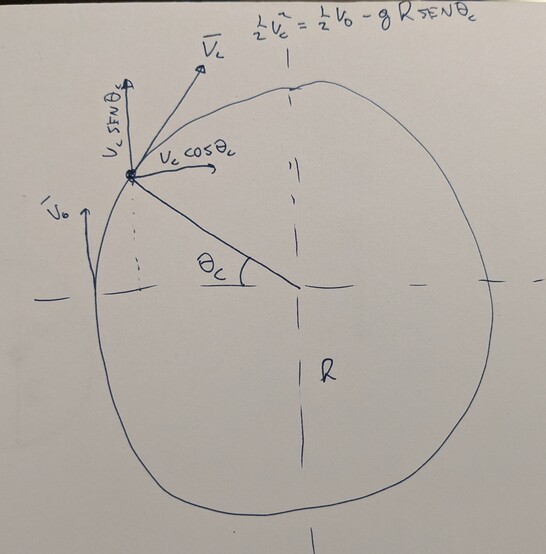 ½ V_c² = ½ V₀ - g R SEN θ_c
V̄_c
V_c SEN θ_c
V_c COS θ_c
V̄₀
θ_c
R